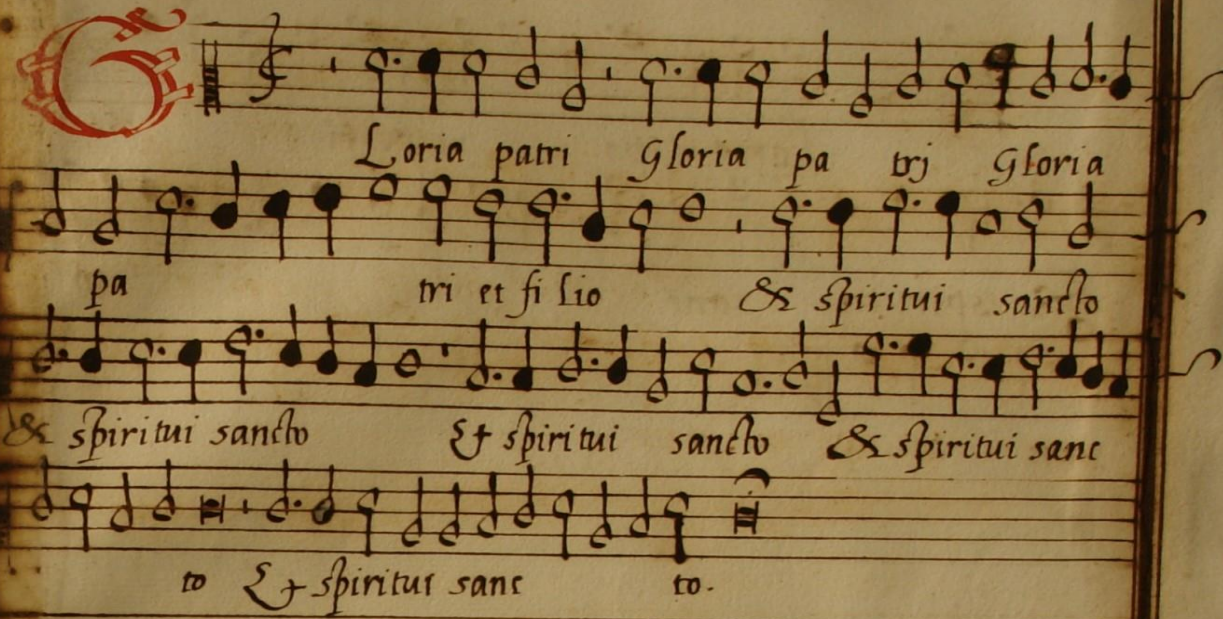 G Loria patri Gloria pa trj Gloria
pa tri et fi lio & spiritui sancto
& spiritui sancto & spiritui sancto & spiritui sanc
to & spiritui sanc to.